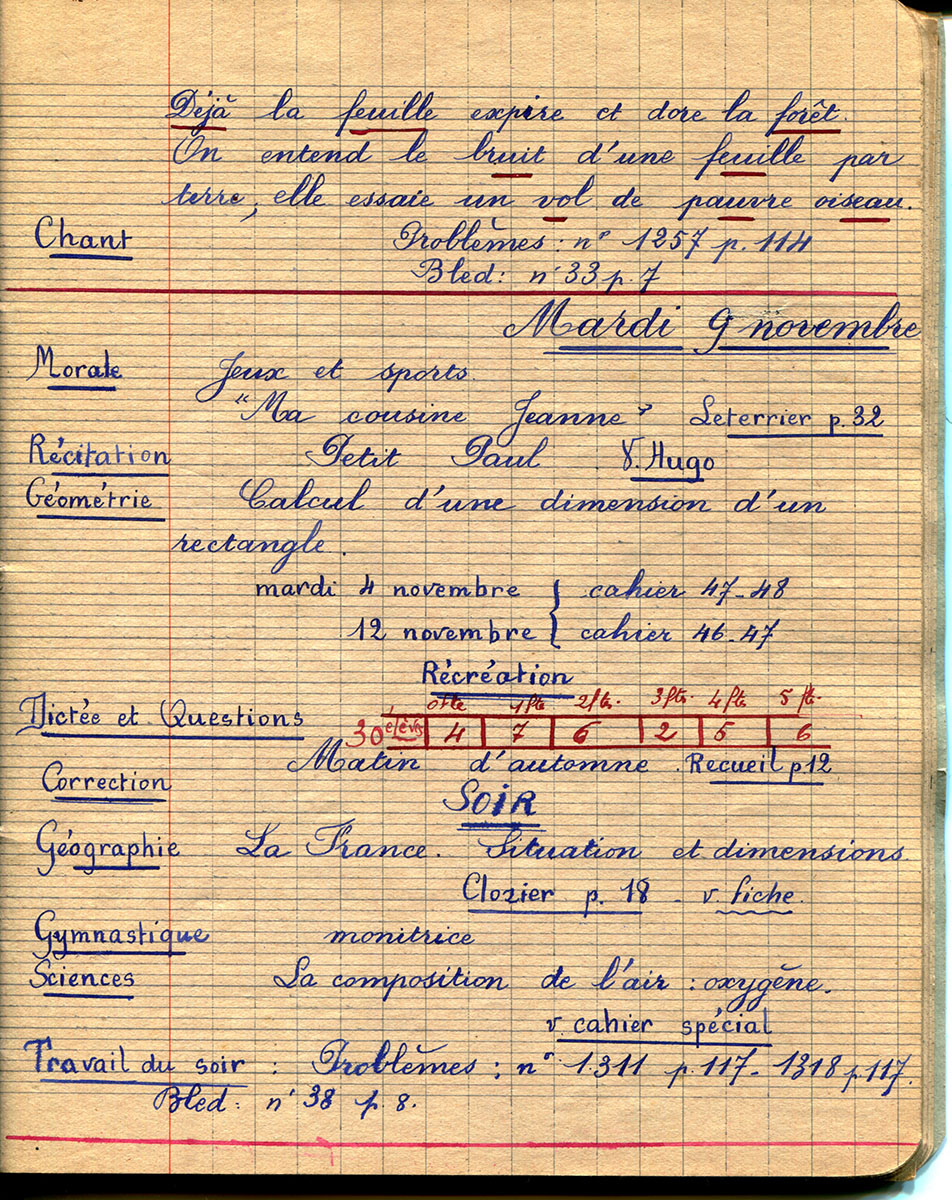 Déjà la feuille expire et dore la forêt.
On entend le bruit d'une feuille par
terre, elle essaie un vol de pauvre oiseau.
Chant Problèmes : n° 1257 p. 114
Bled : n° 33 p. 7
Mardi 9 novembre
Morale Jeux et sports.
"Ma cousine Jeanne" Leterrier p. 32
Récitation Petit Paul V. Hugo
Géométrie Calcul d'une dimension d'un
rectangle.
mardi 4 novembre { cahier 47-48
12 novembre { cahier 46-47
Récréation
0 fte 1 fte 2 ftes. 3 ftes. 4 ftes 5 ft.
Dictée et Questions 30 élèves 4 7 6 2 5 6
Matin d'automne. Recueil p 12
Correction
SOIR
Géographie La France. Situation et dimensions
Clozier p. 18 - v. fiche.
Gymnastique monitrice
Sciences La composition de l'air : oxygène.
v. cahier spécial
Travail du soir : Problèmes : n° 1311 p. 117 - 1318 p. 117.
Bled : n° 38 p. 8.